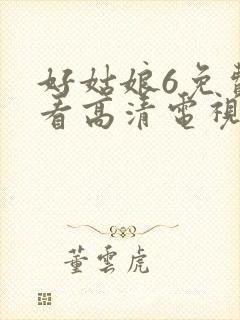 好姑娘6免費
看高清電視
董雲虎